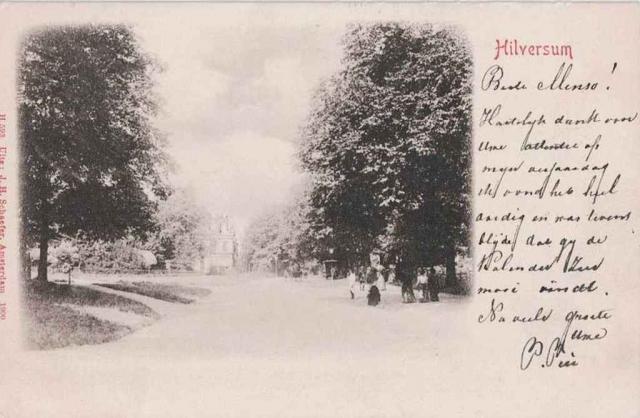 Hilversum
Beste Menso!
Hartelijk dank voor
Uwe attentie op
mijn verjaardag
ik vond het heel
aardig en was tevens
blijde dat gij de
Kalender zeer
mooi vindt.
Na veele groete
Uwe
P.
H 593 Uitg: J. H. Schaefer, Amsterdam 1900